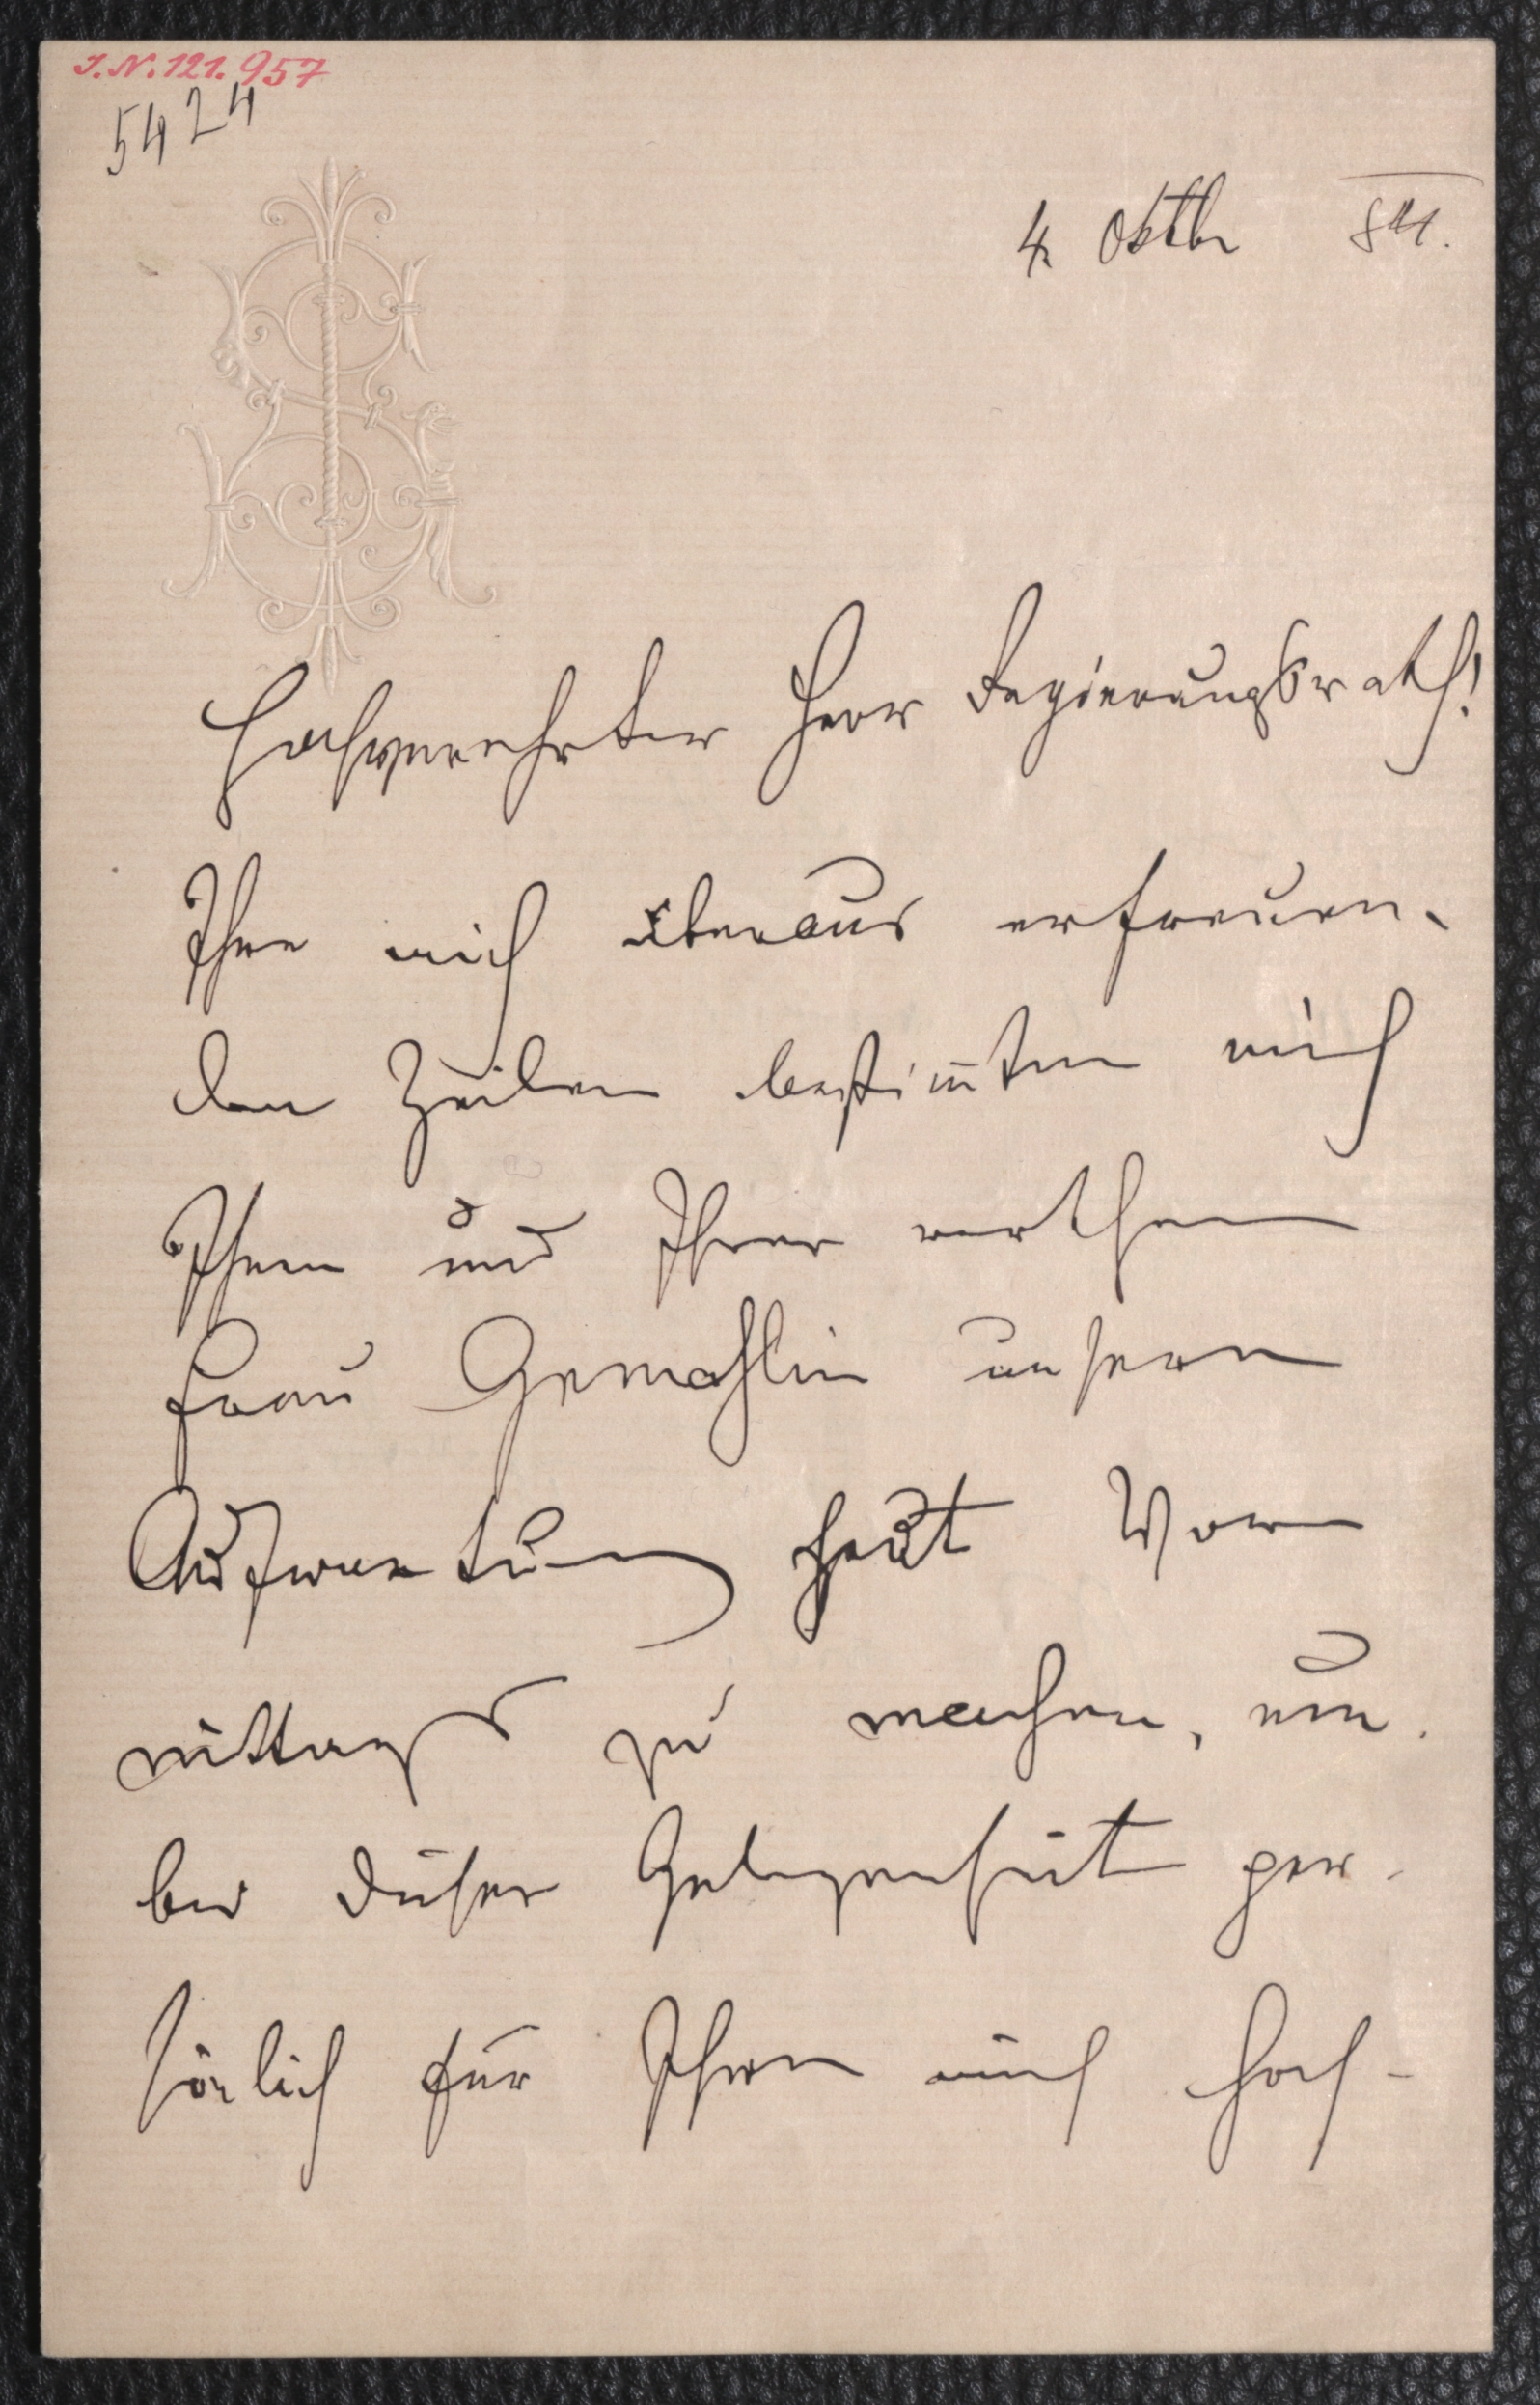 J. N. 121.957
5424
4 Oktbr 84.
Hochverehrter Herr Regierungsrath!
Ihre mich überaus erfreuen-
den Zeilen bestim̅ten mich
Ihnen und Ihrer werthen
Frau Gemahlin unsern
Aufwartung heut Vor
mittags zu machen, um
bei dieser Gelegenheit per-
sönlich für Ihren mich hoch-